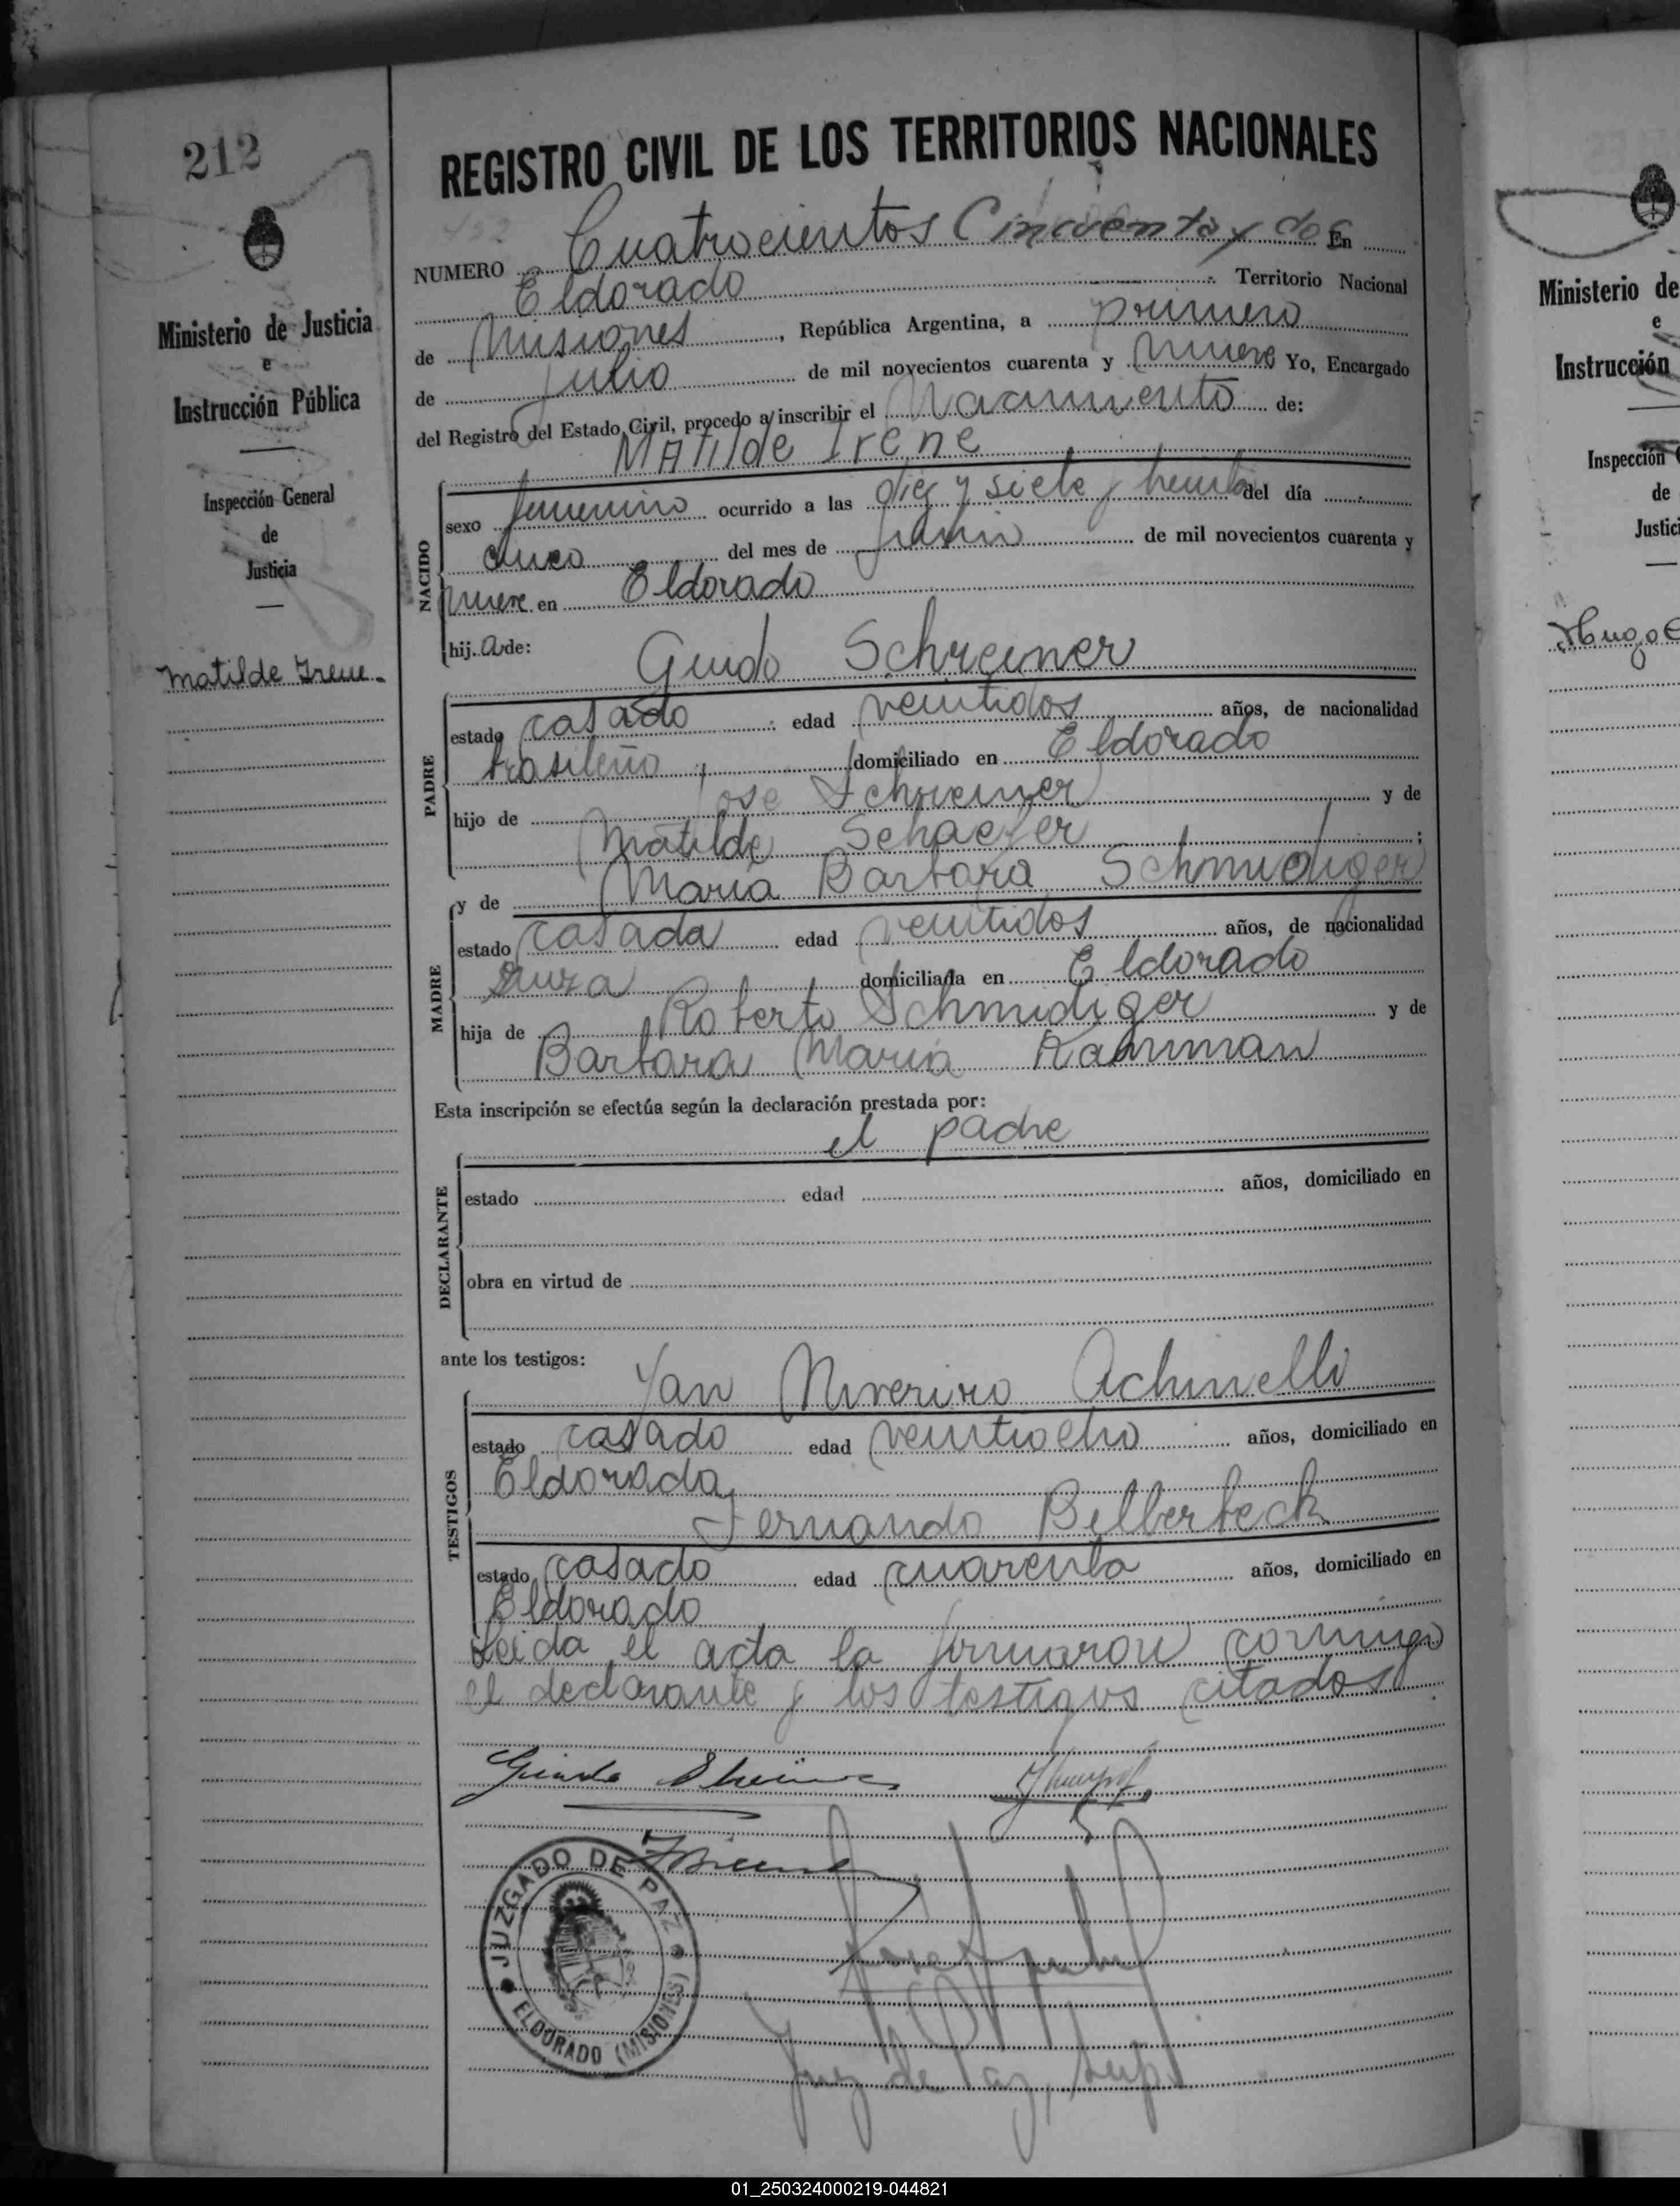 212
Ministerio de Justicia
e
Instrucción Pública
Inspección General
de
Justicia
Matilde Irene.
REGISTRO CIVIL DE LOS TERRITORIOS NACIONALES
452
NUMERO Cuatrocientos Cincuenta y dos En
Eldorado Territorio Nacional
de Misiones, República Argentina, a primero
de julio de mil novecientos cuarenta y nueve Yo, Encargado
del Registro del Estado Civil, procedo a inscribir el Nacimiento de:
MAtilde Irene
NACIDO
sexo femenino ocurrido a las diez y siete y treinta del día
cinco del mes de junio de mil novecientos cuarenta y
nueve en Eldorado
hij a de: Guido Schreiner
PADRE
estado casado edad veintidos años, de nacionalidad
brasileño, domiciliado en Eldorado
hijo de José Schreiner y de
Matilde Schaefer;
y de Maria Barbara Schmidiger
MADRE
estado casada edad veintidos años, de nacionalidad
Suiza domiciliada en Eldorado
hija de Roberto Schmidiger y de
Barbara Maria
Esta inscripción se efectúa según la declaración prestada por:
el padre
DECLARANTE
estado edad años, domiciliado en
obra en virtud de
ante los testigos:
Achinelli
TESTIGOS
estado casado edad veintiocho años, domiciliado en
Eldorado,
Fernando Bilberbeck
estado casado edad cuarenta años, domiciliado en
Eldorado
Leida el acta la firmaron conmigo
el declarante y los testigos citados.
JUZGADO DE PAZ
ELDORADO (MISIONES)
Juez de Paz, Sup.
Ministerio de
e
Instrucción
Inspección G
de
Justic
Hugo
01_250324000219-044821